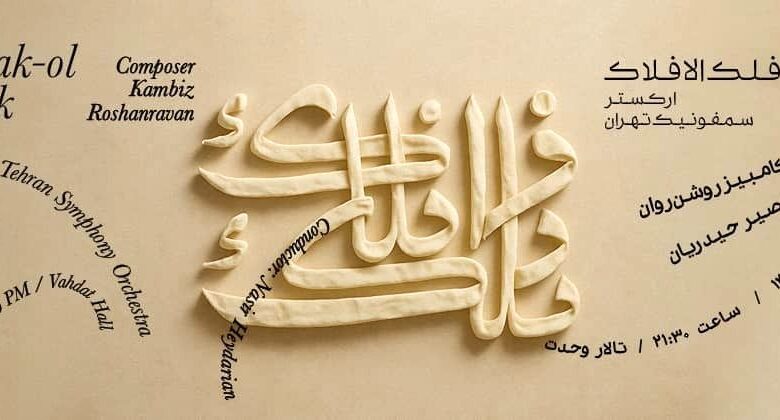 ak-ol
k
Composer
Kambiz
Roshanravan
Tehran Symphony Orchestra
PM / Vahdat Hall
Conductor: Nasir Heydarian
فلک الافلاک
فلک الافلاک
ارکستر
سمفونیک تهران
کامبیز روشن‌روان
صیر حیدریان
ساعت ۲۱:۳۰ / تالار وحدت